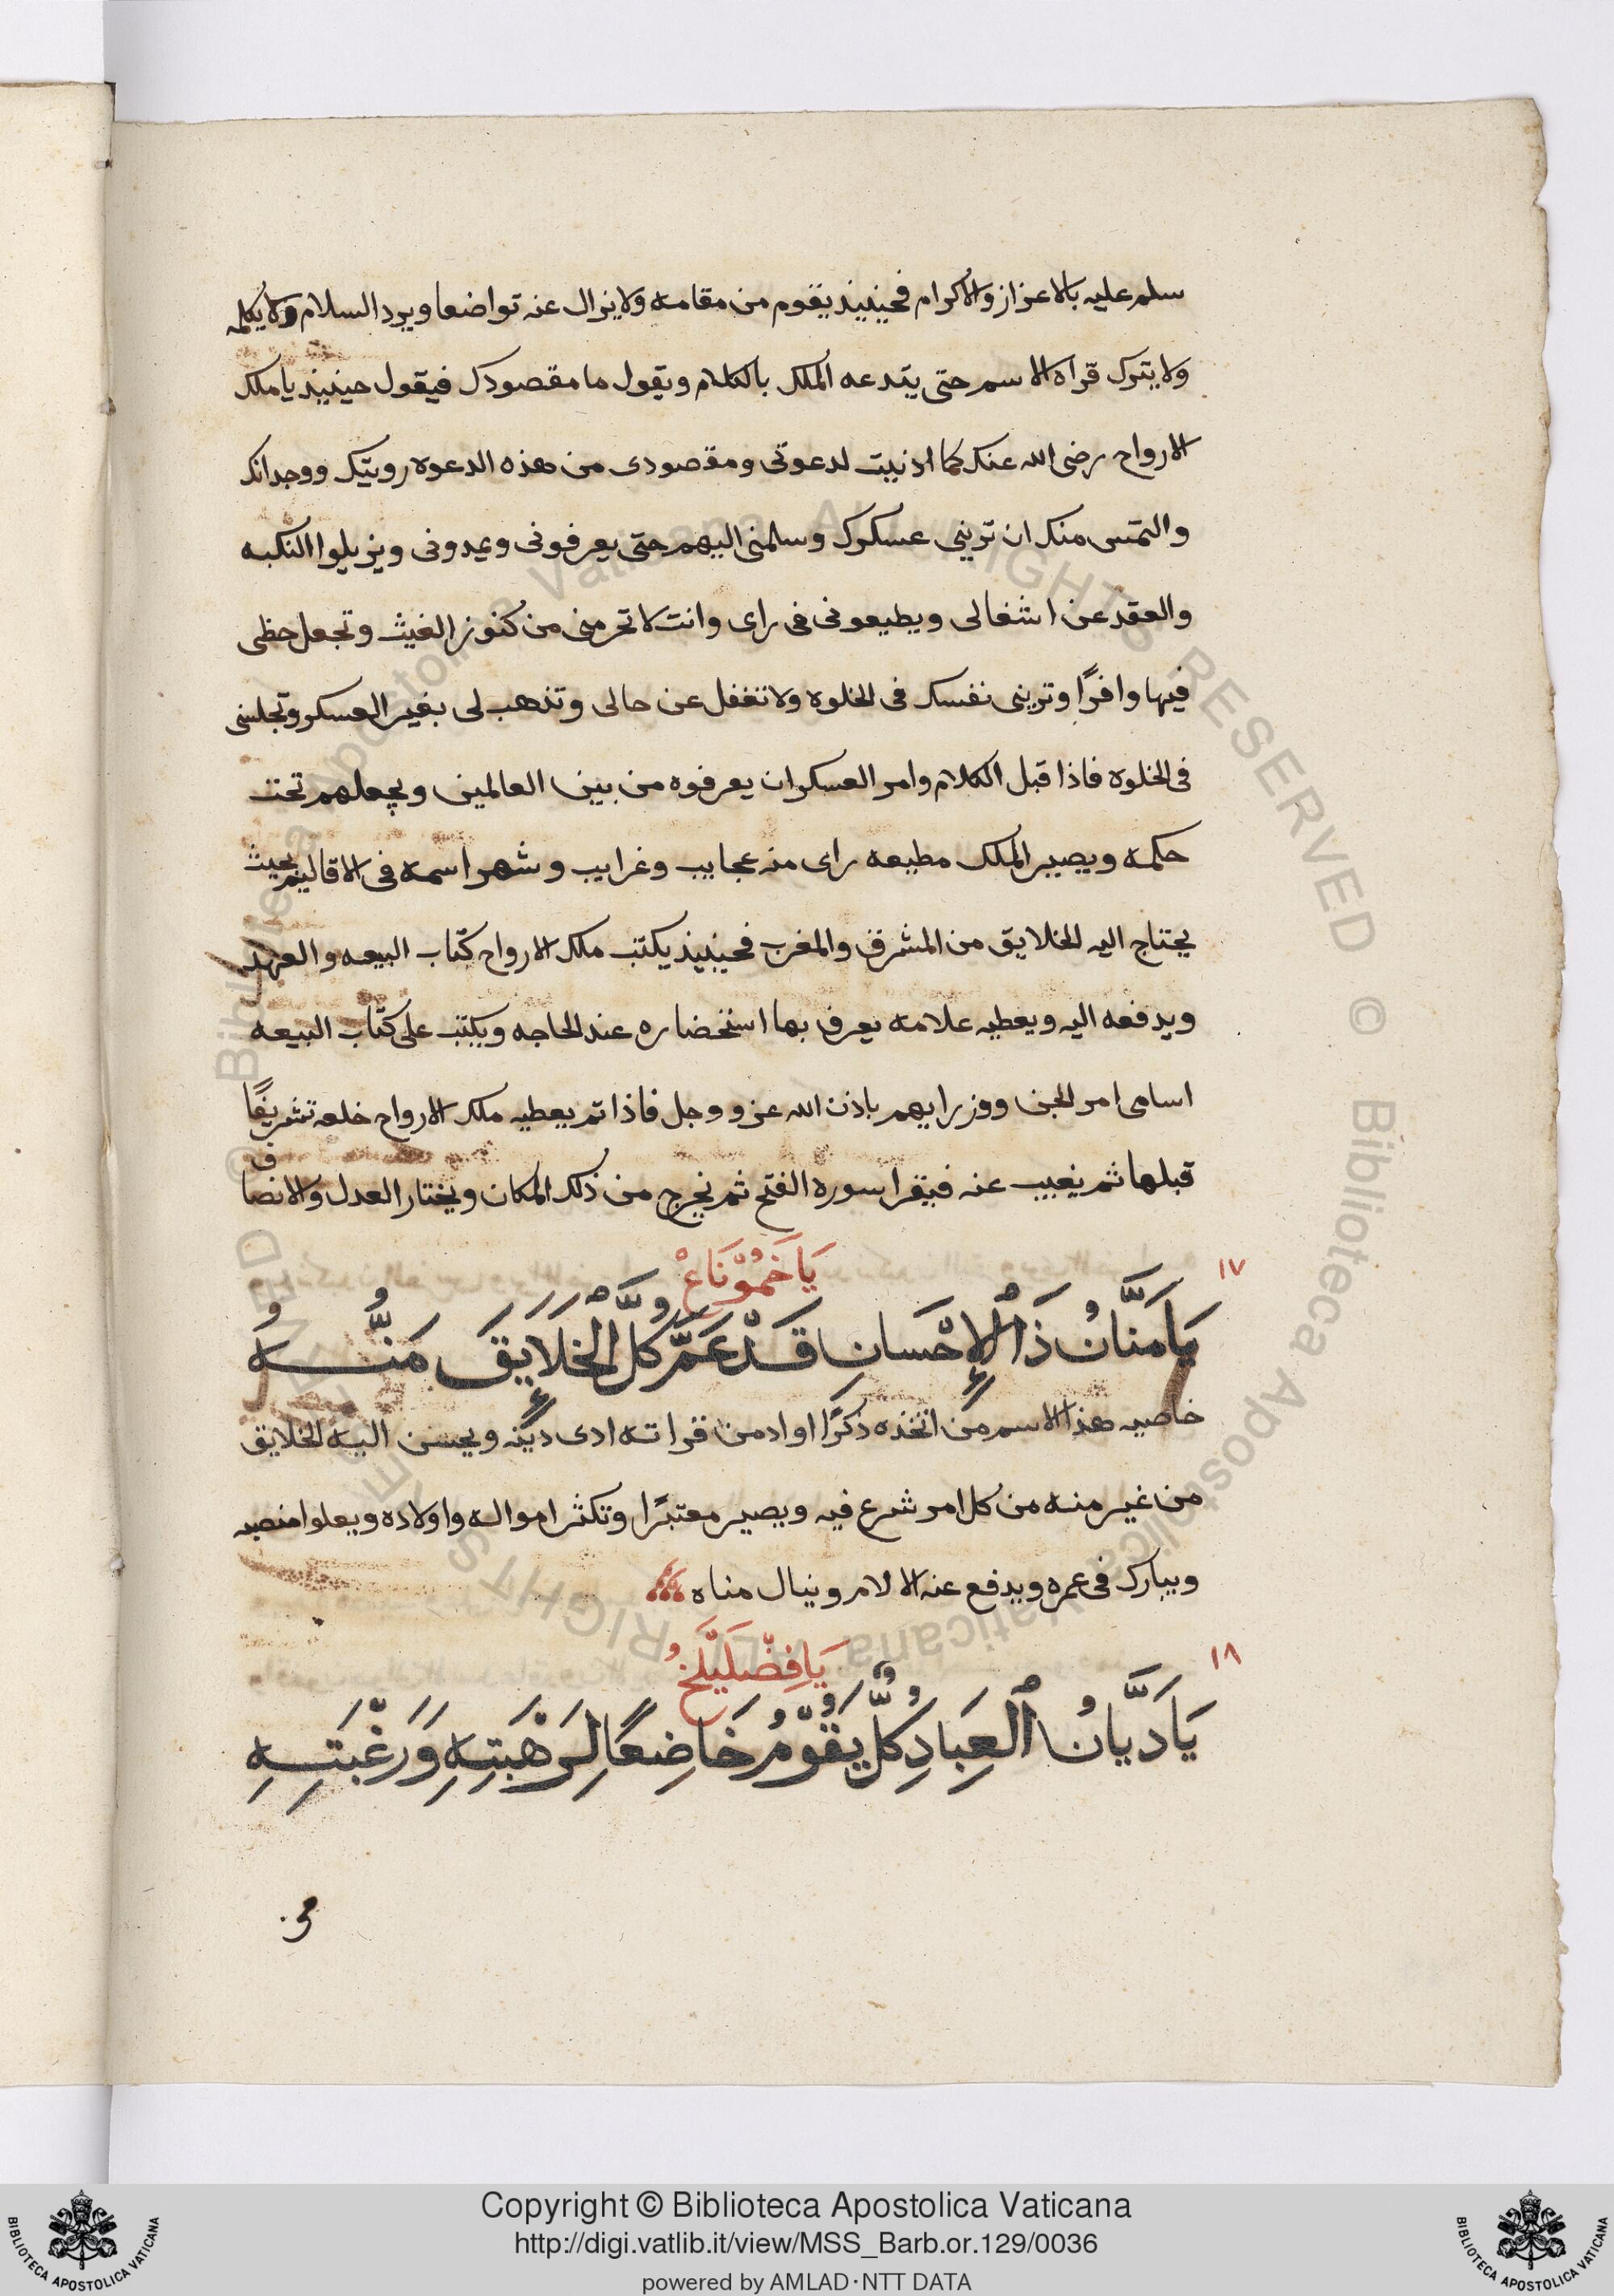 سلم عليه بالاعزاز والاكرام فحينيذ يقوم من مقامه ولا يزال عنه تواضعا ويرد السلام ولا يكلمه
ولا يترك قراه الاسم حتى يتدعه الملك بالكلام ويقول ما مقصودك فيقول حينيذ يا ملك
الارواح رضى الله عنك كما ادنيت لدعوتى ومقصودى من هذه الدعوه رويتك ووجدانك
والتمس منك ان ترينى عسكرك وسلمنى اليهم حتى يعرفونى ويمدونى ويزيلوا النكبه
والعقد عن اشغالى ويطيعونى فى راى وانت لا تحرمنى من كنوز الغيث وتجعل حظى
فيها وافرًا وترينى نفسك فى الخلوه ولا تغفل عن حالى وتذهب لى بغير العسكر وتجلسنى
فى الخلوه فاذا قبل الكلام وامر العسكر ان يعرفوه من بين العالمين ويجعلهم تحت
حكمه ويصير الملك مطيعه راى منه عجايب وغرايب وشهر اسمه فى الاقاليم بحيث
يحتاج اليه الخلايق من المشرق والمغرب فحينيذ يكتب ملك الارواح كتاب البيعه والعهد
ويدفعه اليه ويعطيه علامه يعرف بها استخضاره عند الحاجه ويكتب على كتاب البيعه
اسامى امر الجن ووزرايهم باذن الله عز ووجل فاذا تم يعطيه ملك الارواح خلعه تشريفًا
قبلها ثم يغيب عنه فيقرا سوره الفتح ثم يخرج من ذلك المكان ويختار العدل والانصاف
١٧ يَا خَمُوْنَاعْ
يَا مَنَّانُ ذَا ٱلْإِحْسَانِ قَدْ عَمَّ كُلَّ ٱلْخَلَايِقَ مَنُّهُ
خاصيه هذا الاسم من اتخذه ذكرًا او ادمن قراته ادى دينه ويحسن اليه الخلايق
من غير منه من كل امر شرع فيه ويصير معتبرًا وتكثر امواله واولاده ويعلوا منصبه
ويبارك فى عمره ويدفع عنه الالام وينال مناه
١٨ يَا فِضّلَيْلَخُ
يَا دَيَّانُ ٱلْعِبَادِ كُلٌّ يَقُوْمُ خَاضِعًا لِرَهْبَتِهِ وَرَغْبَتِهِ
Copyright © Biblioteca Apostolica Vaticana
http://digi.vatlib.it/view/MSS_Barb.or.129/0036
powered by AMLAD·NTT DATA
BIBLIOTECA APOSTOLICA VATICANA
BIBLIOTECA APOSTOLICA VATICANA